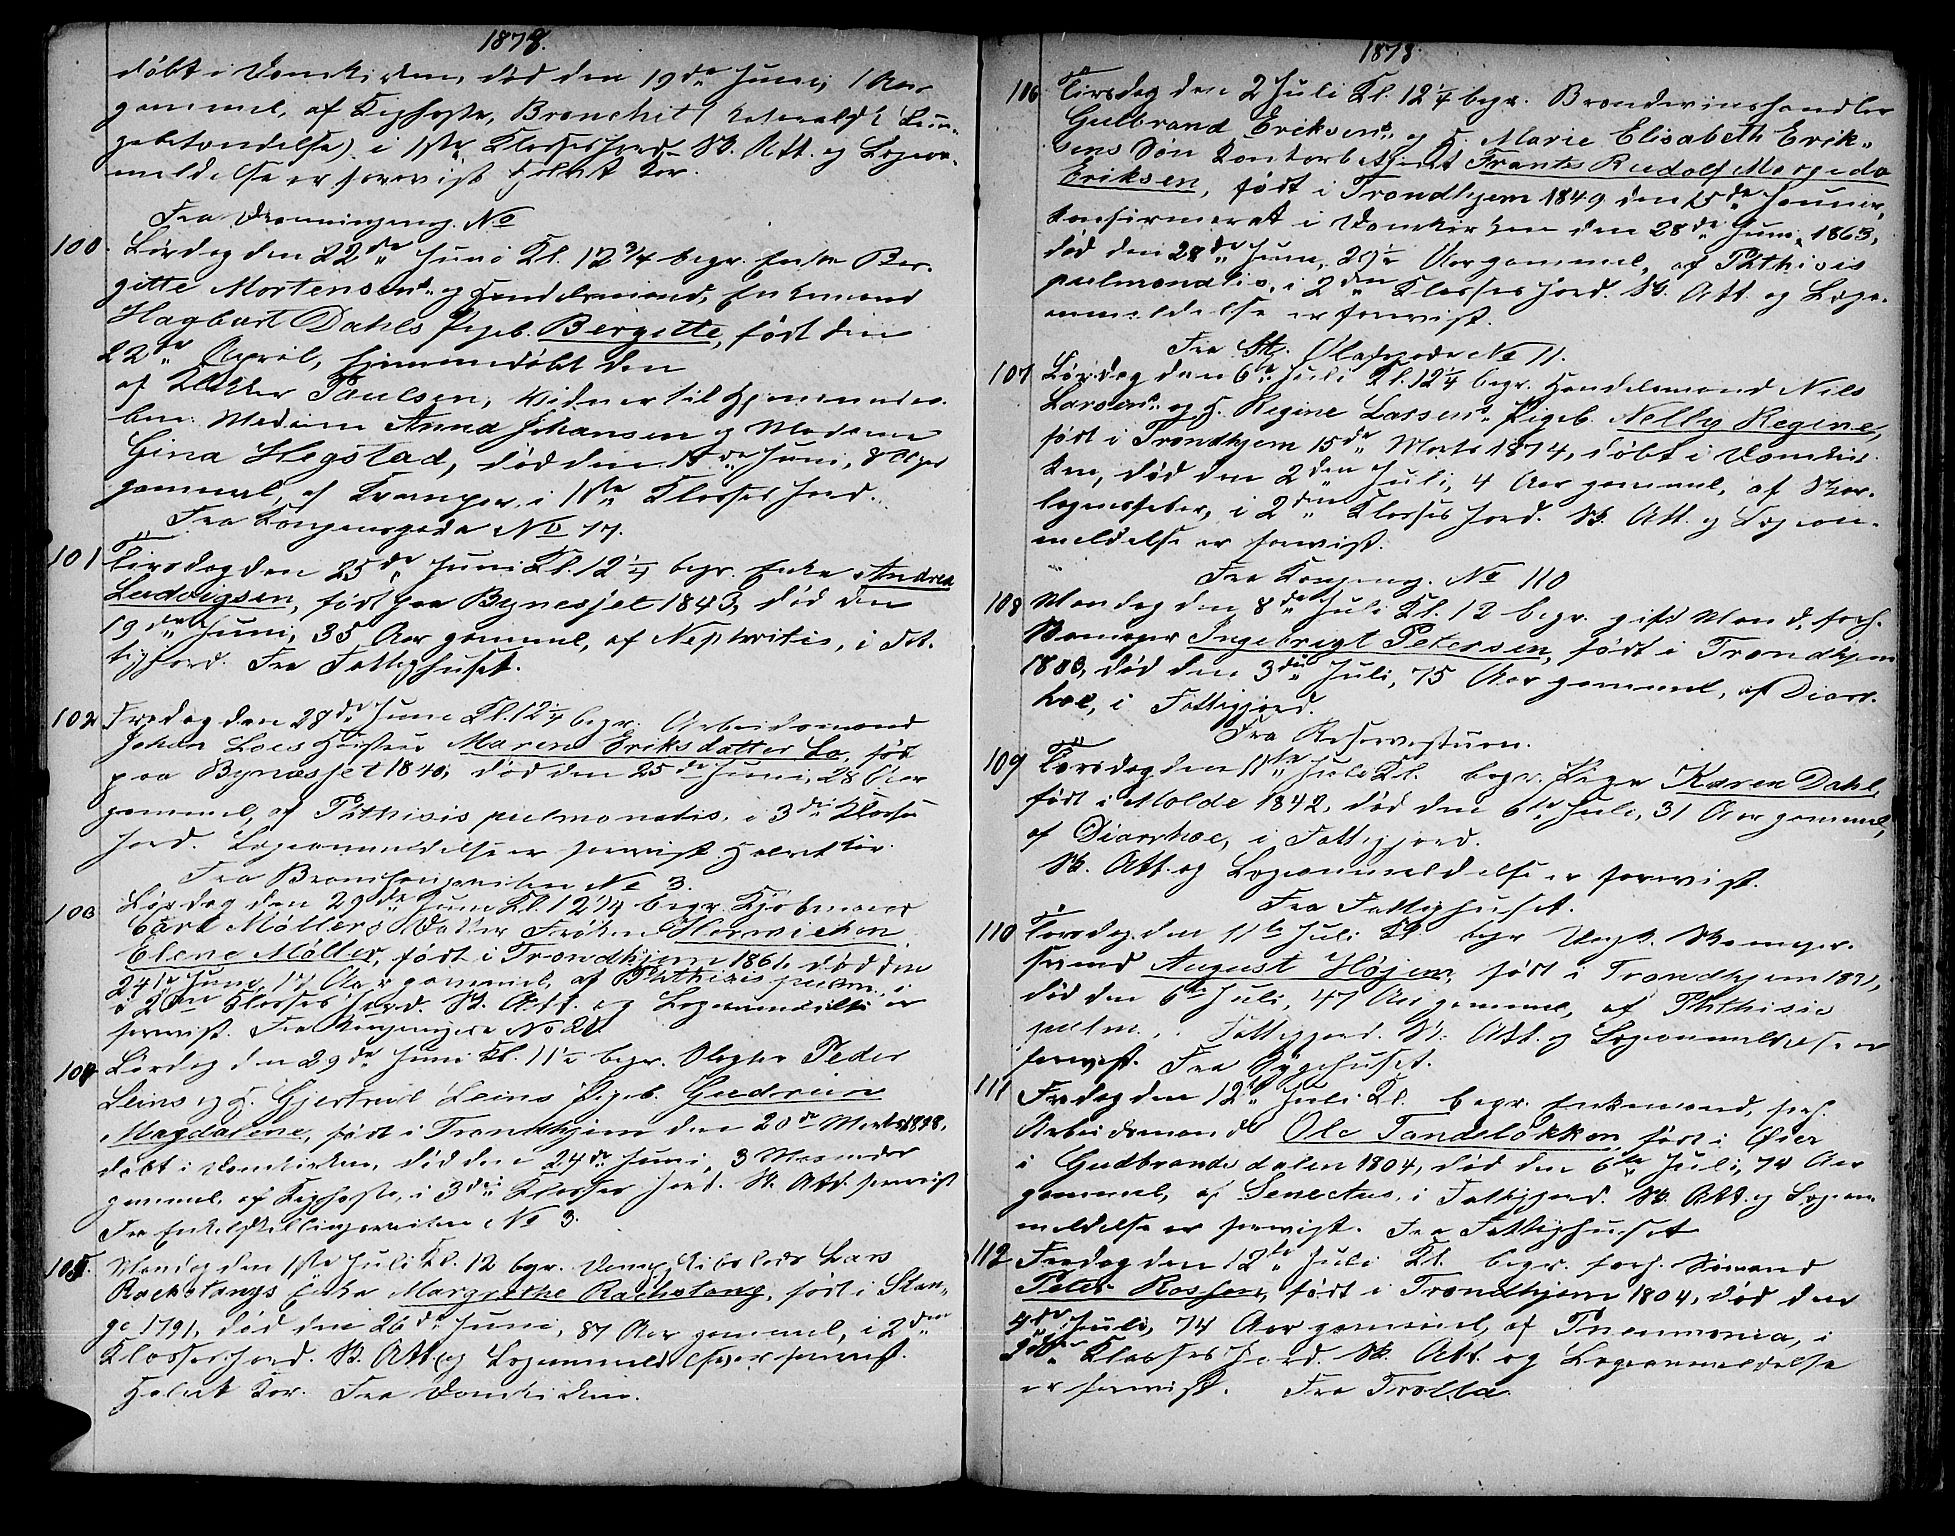 1878.
døbt i Domkirken, død den 19de Juni, 1 Aar
gammel, af Kighoste, Bronchit (
gebetændelse) i 1ste Klasses Jord. Sk. Att. og Lægean-
meldelse er forevist Halvt Kor.
Fra Dronningensg. No
100. Lørdag den 22de Juni Kl. 12 3/4 begr. Enke Ber-
gitte Mortensens og Handelsmand, Enkemand
Hagbart Dahls Pigeb. Bergitte, født den
22de April, hjemmedøbt den
af Klokker Paulsen, Vidner til Hjemmedaa-
ben: Madame Anna Johansen og Madame
Gina Hegstad, død den Juni, 8 Uger
gammel, af Kramper, i 1ste Klasses Jord.
Fra Kongensgade No 77.
101 Tirsdag den 25de Juni Kl. 12 1/4 begr. Enke Andrea
Ludvigsen, født paa Bynesset 1843, død den
19de Juni, 35 Aar gammel, af Nephritis, i Fat-
tigjord. Fra Fattighuset.
102 Fredag den 28de Juni Kl. 12 1/4 begr. Arbeidsmand
Johan Loes Hustru Maren Eriksdatter Lo, født
paa Bynæsset 1840, død den 25de Juni, 28 Aar
gammel, af Phthisis pulmonalis, i 3die Klasses
Jord. Lægeanmeldelse er forevist Halvt Kor.
Fra No 3.
103 Lørdag den 29de Juni Kl. 12 1/4 begr. Kjøbmand
Carl Møllers Datter Frøken
Elene Møller, født i Trondhjem 1861, død den
24de Juni, 17 Aar gammel, af Phthisis pulm., i
i 2den Klasses Jord. Sk. Att. og Lægeanmeldelse er
forevist. Fra No
104 Lørdag den 29de Juni Kl. 11 1/2 begr. Slagter Peder
Leins og H. Gjertrud Leins Pigeb. Gudrun
Magdalene, født i Trondhjem den 20de Marts 1878,
døbt i Domkirken, død den 24de Juni, 3 Maaneder
gammel, af Kighoste, i 3die Klasses Jord. Sk. Att. forevist
Fra Enkeltskillingsveiten No 3.
105. Mandag den 1ste Juli Kl. 12 begr. Lars
Rochstangs Enke Margrethe Rochstang, født i Stan-
ge 1791, død den 26de Juni, 87 Aar gammel, i 2den
Klasses Jord. Sk. Att. og Lægeanmeldelse er forevist.
Halvt Kor. Fra Domkirken.
1878.
106 Tirsdag den 2 Juli Kl. 12 1/4 begr. Brændevinshandler
Gulbrand Eriksens og H. Marie Elisabeth Erik-
sens Søn Kontorbetjent Frants Rudolf
Eriksen, født i Trondhjem 1849 den 15de Januar,
konfirmeret i Domkirken den 28de Juni 1863,
død den 28de Juni, 29 1/2 Aar gammel, af Phthisis
pulmonalis, i 2den Klasses Jord. Sk. Att. og Lægean-
meldelse er forevist.
Fra St. Olafsgade No 11.
107 Lørdag den 6te Juli Kl. 12 1/4 begr. Handelsmand Nils
Larsens og H. Regine Larsens Pigeb. Nelly Regine,
født i Trondhjem 15de Marts 1874, døbt i Domkir-
ken, død den 2den Juli, 4 Aar gammel, af Skar-
lagensfeber, i 2den Klasses Jord. Sk. Att. og Lægean-
meldelse er forevist.
Fra Kongensg. No 110
108 Mandag den 8de Juli Kl. 12 begr. gift Mand, forh.
Skomager Ingebregt Petersen, født i Trondhjem
1803, død den 3die Juli, 75 Aar gammel, af Diarr-
hoe, i Fattigjord.
Fra Reservestuen.
109 Torsdag den 11te Juli Kl. begr. Pige Karen Dahl,
født i Molde 1842, død den 6te Juli, 31 Aar gammel,
af Diarrhoe, i Fattigjord.
Sk. Att. og Lægeanmeldelse er forevist.
Fra Fattighuset.
110 Torsdag den 11te Juli Kl. begr. Ungk. Skomager-
svend August Højem, født i Trondhjem 1831,
død den 6te Juli, 47 Aar gammel, af Phthisis
pulm., i Fattigjord. Sk. Att. og Lægeanmeldelse er
forevist. Fra Sygehuset.
111 Fredag den 12te Juli Kl. begr. Enkemand, forh.
Arbeidsmand Ole Tandeløkken, født i Øier
i Gudbrandsdalen 1804, død den 6te Juli, 74 Aar
gammel, af Senectus, i Fattigjord. Sk. Att. og Lægean-
meldelse er forevist. Fra Fattighuset
112 Fredag den 12te Juli Kl. begr. forh. Sømand
Peter Rossen, født i Trondhjem 1804, død den
4de Juli, 74 Aar gammel, af Pneumonia, i
3die Klasses Jord. Sk. Att. og Lægeanmeldelse
er forevist. Fra Trolla.